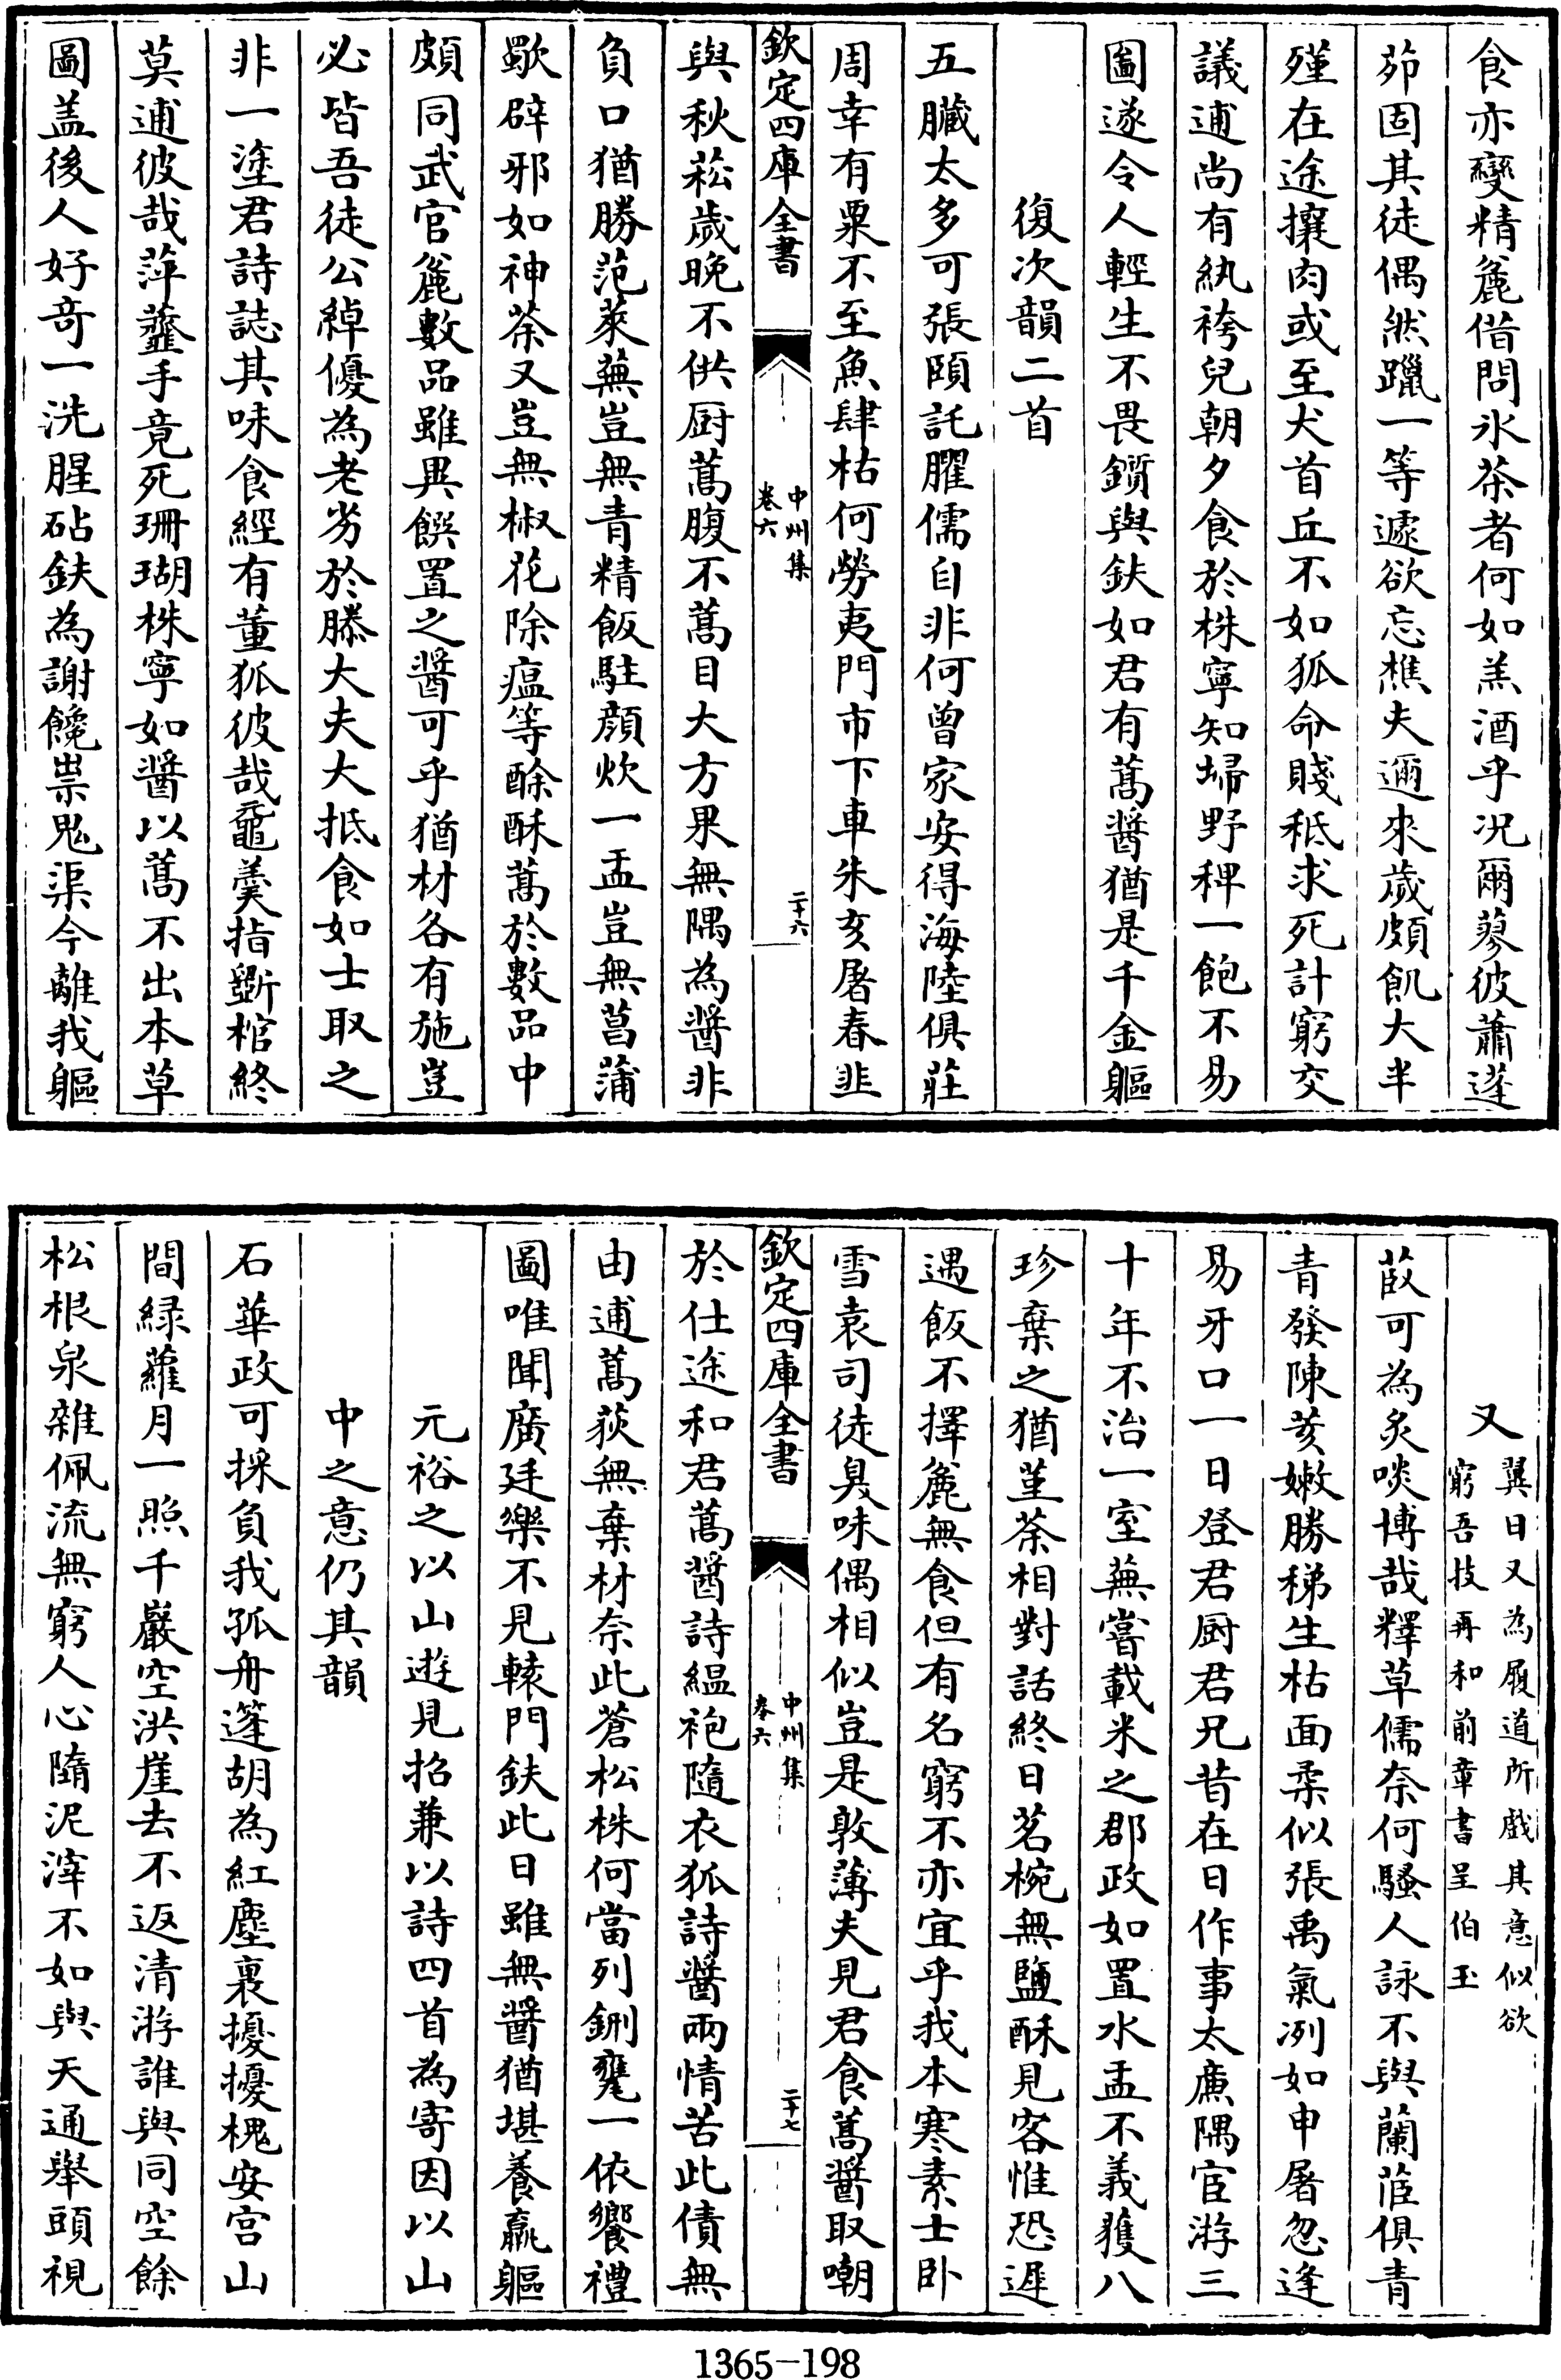 食亦變精麄借問氷茶者何如羔酒乎况爾蔘彼蕭蓬
茆固其徒偶然躐一等遽欲忘樵夫邇來歲頗飢大半
殣在途攘肉或至犬首丘不如狐命賤秪求死計窮交
議逋尚有紈袴兒朝夕食於株寧知埽野稗一飽不易
圖遂令人輕生不畏鑕與鈇如君有蒿醬猶是千金軀
復次韻二首
五臟太多可張頤託臞儒自非何曾家安得海陸俱莊
周幸有粟不至魚肆枯何勞夷門市下車朱亥屠春韭
欽定四庫全書
中州集
卷六
二十六
與秋菘歲晚不供厨蒿腹不蒿目大方果無隅為醬非
負口猶勝范萊蕪豈無青精飯駐顔炊一盂豈無菖蒲
歜辟邪如神荼又豈無椒花除瘟等酴酥蒿於數品中
頗同武官麄數品雖異饌置之醬可乎猶材各有施豈
必皆吾徒公綽優為老劣於滕大夫大抵食如士取之
非一塗君詩誌其味食經有董狐彼哉黿羮指斵棺終
莫逋彼哉萍虀手竟死珊瑚株寧如醬以蒿不出本草
圖盖後人好竒一洗腥砧鈇為謝饞祟鬼渠今離我軀
又
翼日又為履道所戲其意似欲
窮吾技再和前章書呈伯玉
菽可為炙啖博哉釋草儒奈何騷人詠不與蘭茝俱青
青發陳荄嫩勝稊生枯面柔似張禹氣冽如申屠忽逢
易牙口一日登君厨君兄昔在日作事太亷隅宦游三
十年不治一室蕪嘗載米之郡政如置水盂不義獲八
珍棄之猶堇荼相對話終日茗椀無鹽酥見客惟恐遲
遇飯不擇麄無食但有名窮不亦宜乎我本寒素士卧
雪袁司徒臭味偶相似豈是敦薄夫見君食蒿醬取嘲
欽定四庫全書
中州集
卷六
二十七
於仕途和君蒿醬詩緼袍隨衣狐詩醬兩情苦此債無
由逋蒿荻無棄材奈此蒼松株何當列鉶鼐一依饗禮
圖唯聞廣廷樂不見轅門鈇此日雖無醬猶堪養羸軀
元裕之以山遊見招兼以詩四首為寄因以山
中之意仍其韻
石華政可採負我孤舟篷胡為紅塵裏擾擾槐安宫山
間緑蘿月一照千巖空洪崖去不返清游誰與同空餘
松根泉雜佩流無窮人心隨泥滓不如與天通舉頭視
1365-198